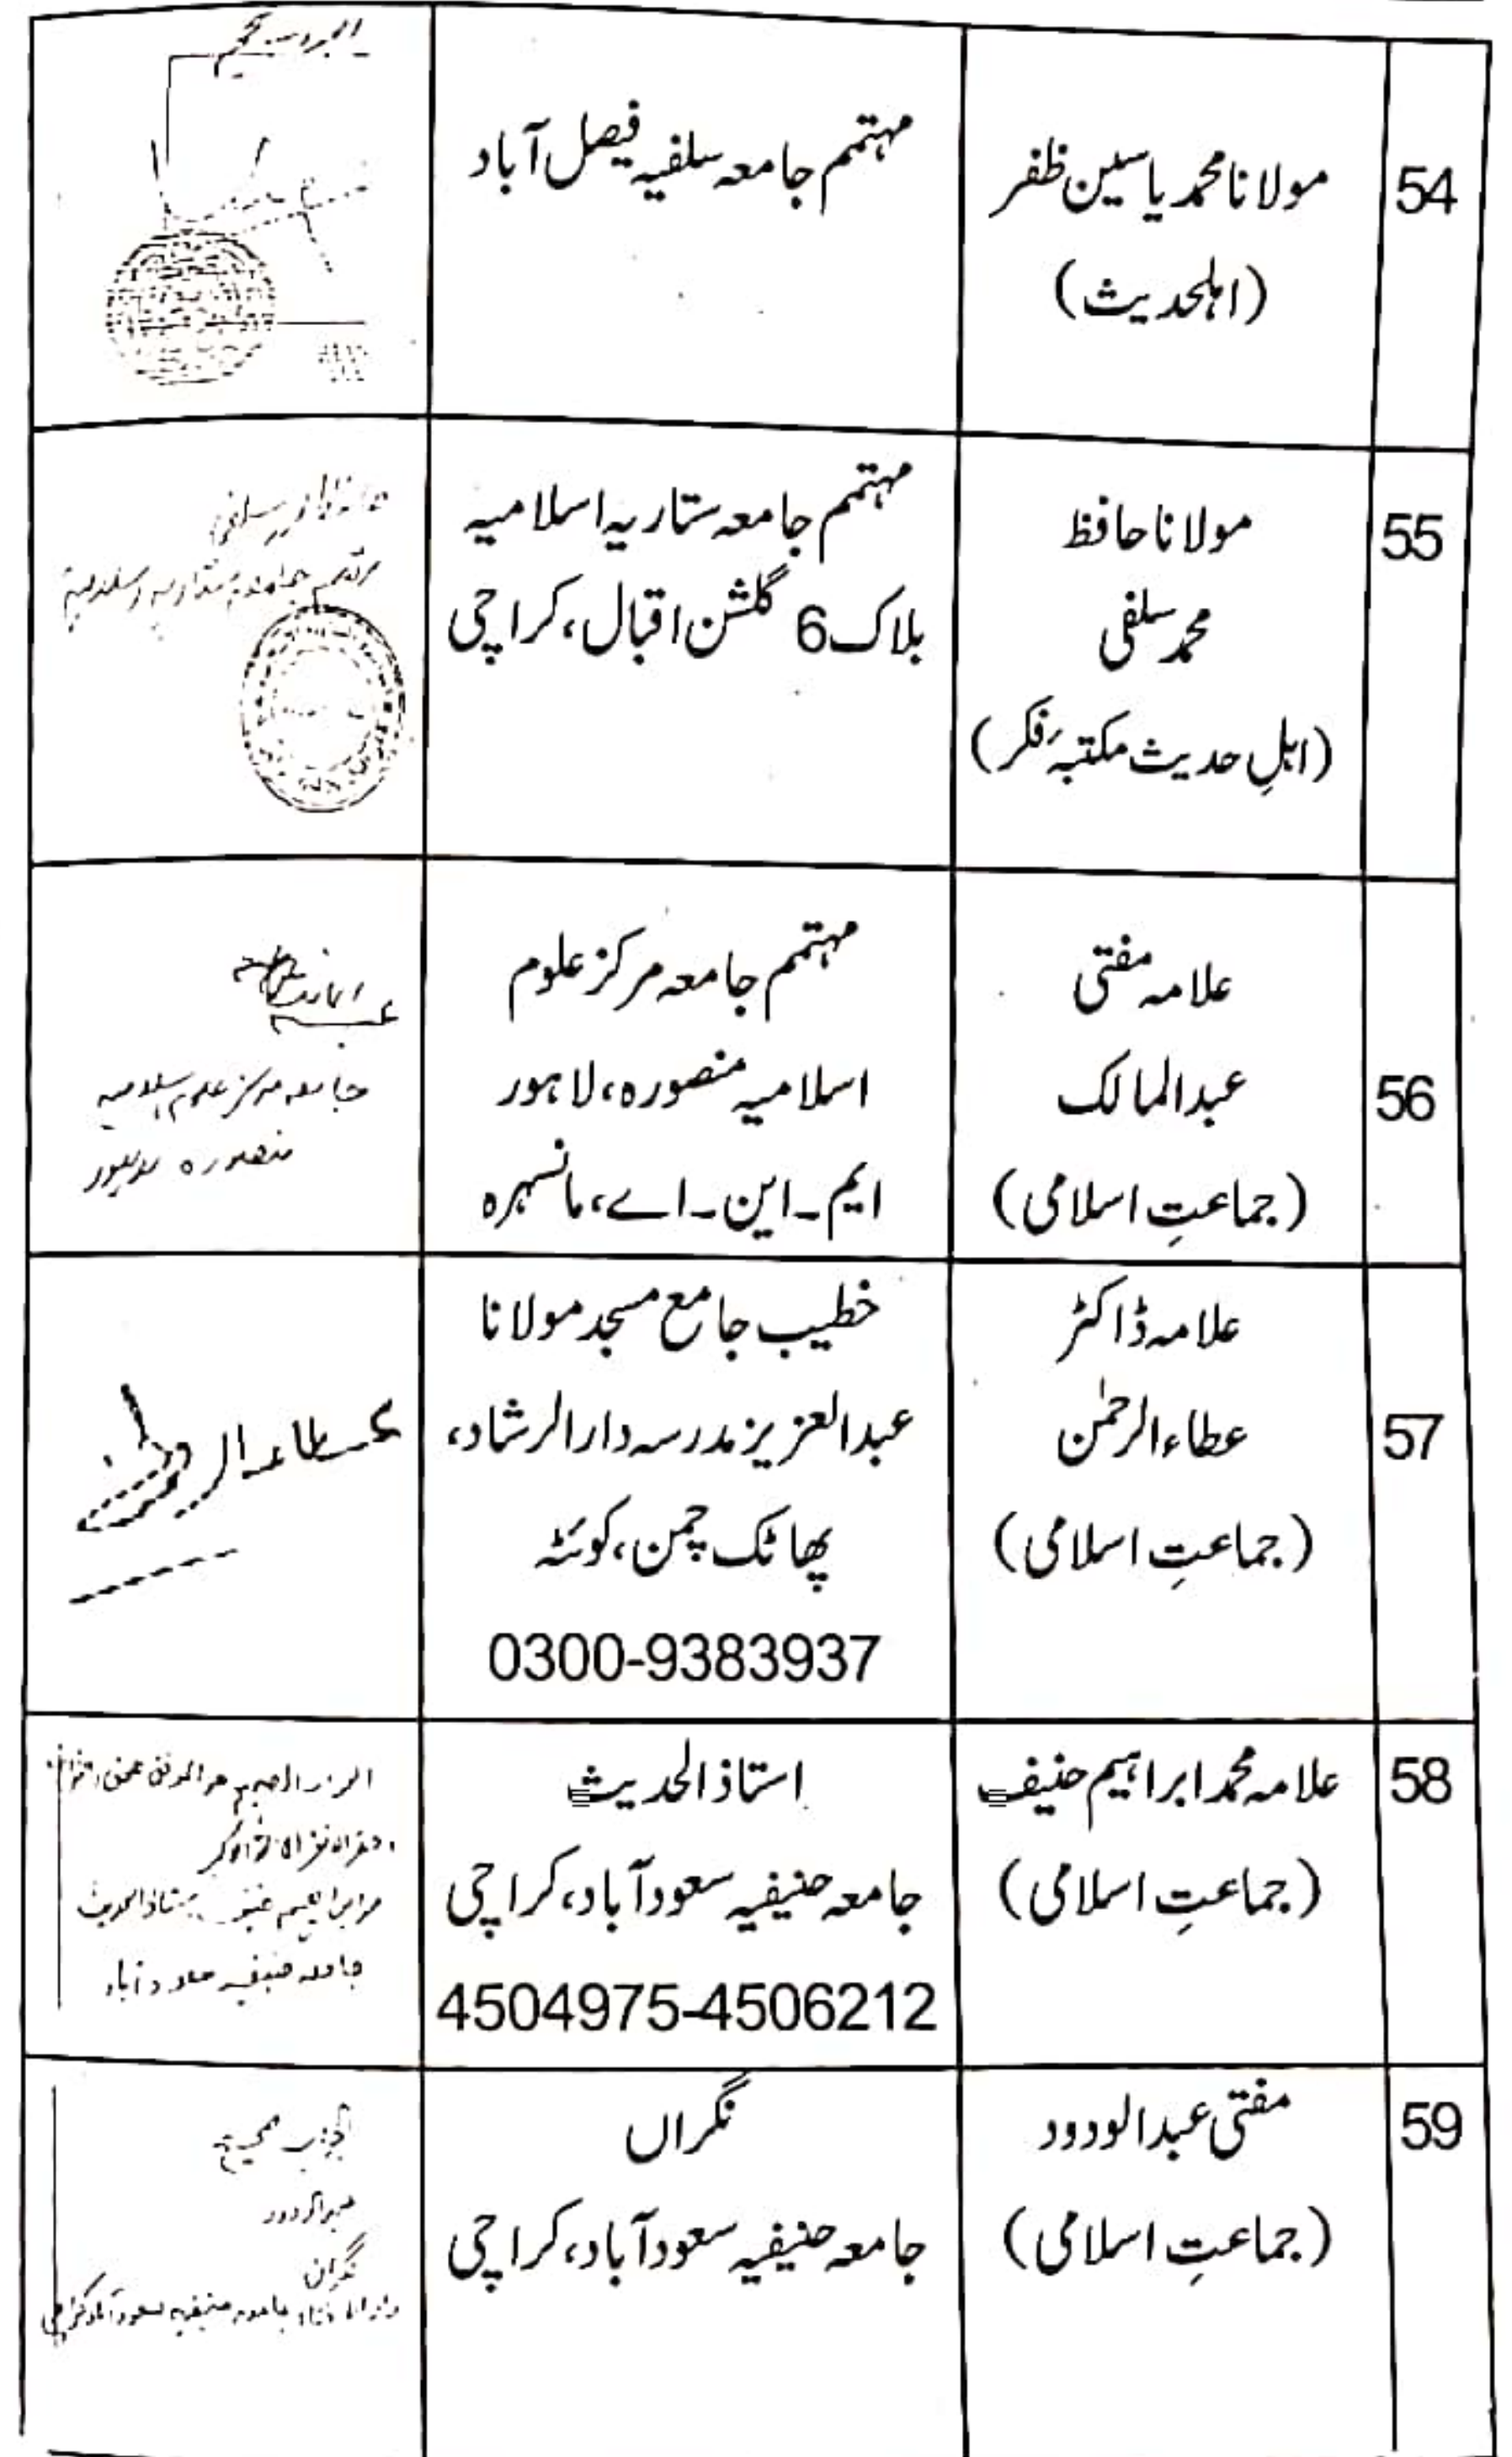 54
مولانا محمد یاسین ظفر
(اہلحدیث)
مہتمم جامعہ سلفیہ فیصل آباد
55
مولانا حافظ
محمد سلفی
(اہلِ حدیث مکتبہٴ فکر)
مہتمم جامعہ ستاریہ اسلامیہ
بلاک 6 گلشن اقبال، کراچی
مہتمم جامعہ ستاریہ اسلامیہ
56
علامہ مفتی
عبدالمالک
(جماعتِ اسلامی)
مہتمم جامعہ مرکز علوم
اسلامیہ منصورہ، لاہور
ایم۔این۔اے، مانسہرہ
جامعہ مرکز علوم اسلامیہ
منصورہ لاہور
57
علامہ ڈاکٹر
عطاء الرحمٰن
(جماعتِ اسلامی)
خطیب جامع مسجد مولانا
عبدالعزیز مدرسہ دارالرشاد،
پھاٹک چمن، کوئٹہ
0300-9383937
عطاء الرحمٰن
58
علامہ محمد ابراہیم حنیف
(جماعتِ اسلامی)
استاذ الحدیث
جامعہ حنیفیہ سعود آباد، کراچی
4504975-4506212
ابراہیم حنیف استاذ الحدیث
جامعہ حنیفیہ سعود آباد
59
مفتی عبدالودود
(جماعتِ اسلامی)
نگراں
جامعہ حنیفیہ سعود آباد، کراچی
الجواب صحیح
عبدالودود
نگران
دارالافتاء جامعہ حنیفیہ سعود آباد کراچی